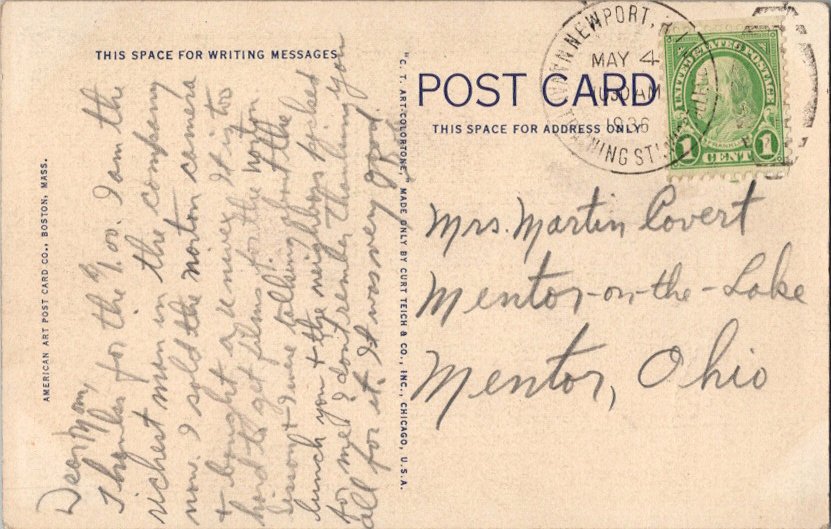 THIS SPACE FOR WRITING MESSAGES
Dear Mom,
Thanks for the $1.00. I am the
richest man in the company
now. I sold the norton camera
+ bought a univex. It is too
hard to get films for the norton.
+ I were talking about the
lunch you + the neighbors packed
for me. I dont remember thanking you
all for it. It was very good.
AMERICAN ART POST CARD CO., BOSTON, MASS.
"C. T. ART-COLORTONE," MADE ONLY BY CURT TEICH & CO., INC., CHICAGO, U.S.A.
POST CARD
THIS SPACE FOR ADDRESS ONLY
NEWPORT, R.I.
MAY 4
AM
1936
UNITED STATES POSTAGE
FRANKLIN
1 CENT 1
Mrs. Martin Covert
Mentor-on-the-Lake
Mentor, Ohio